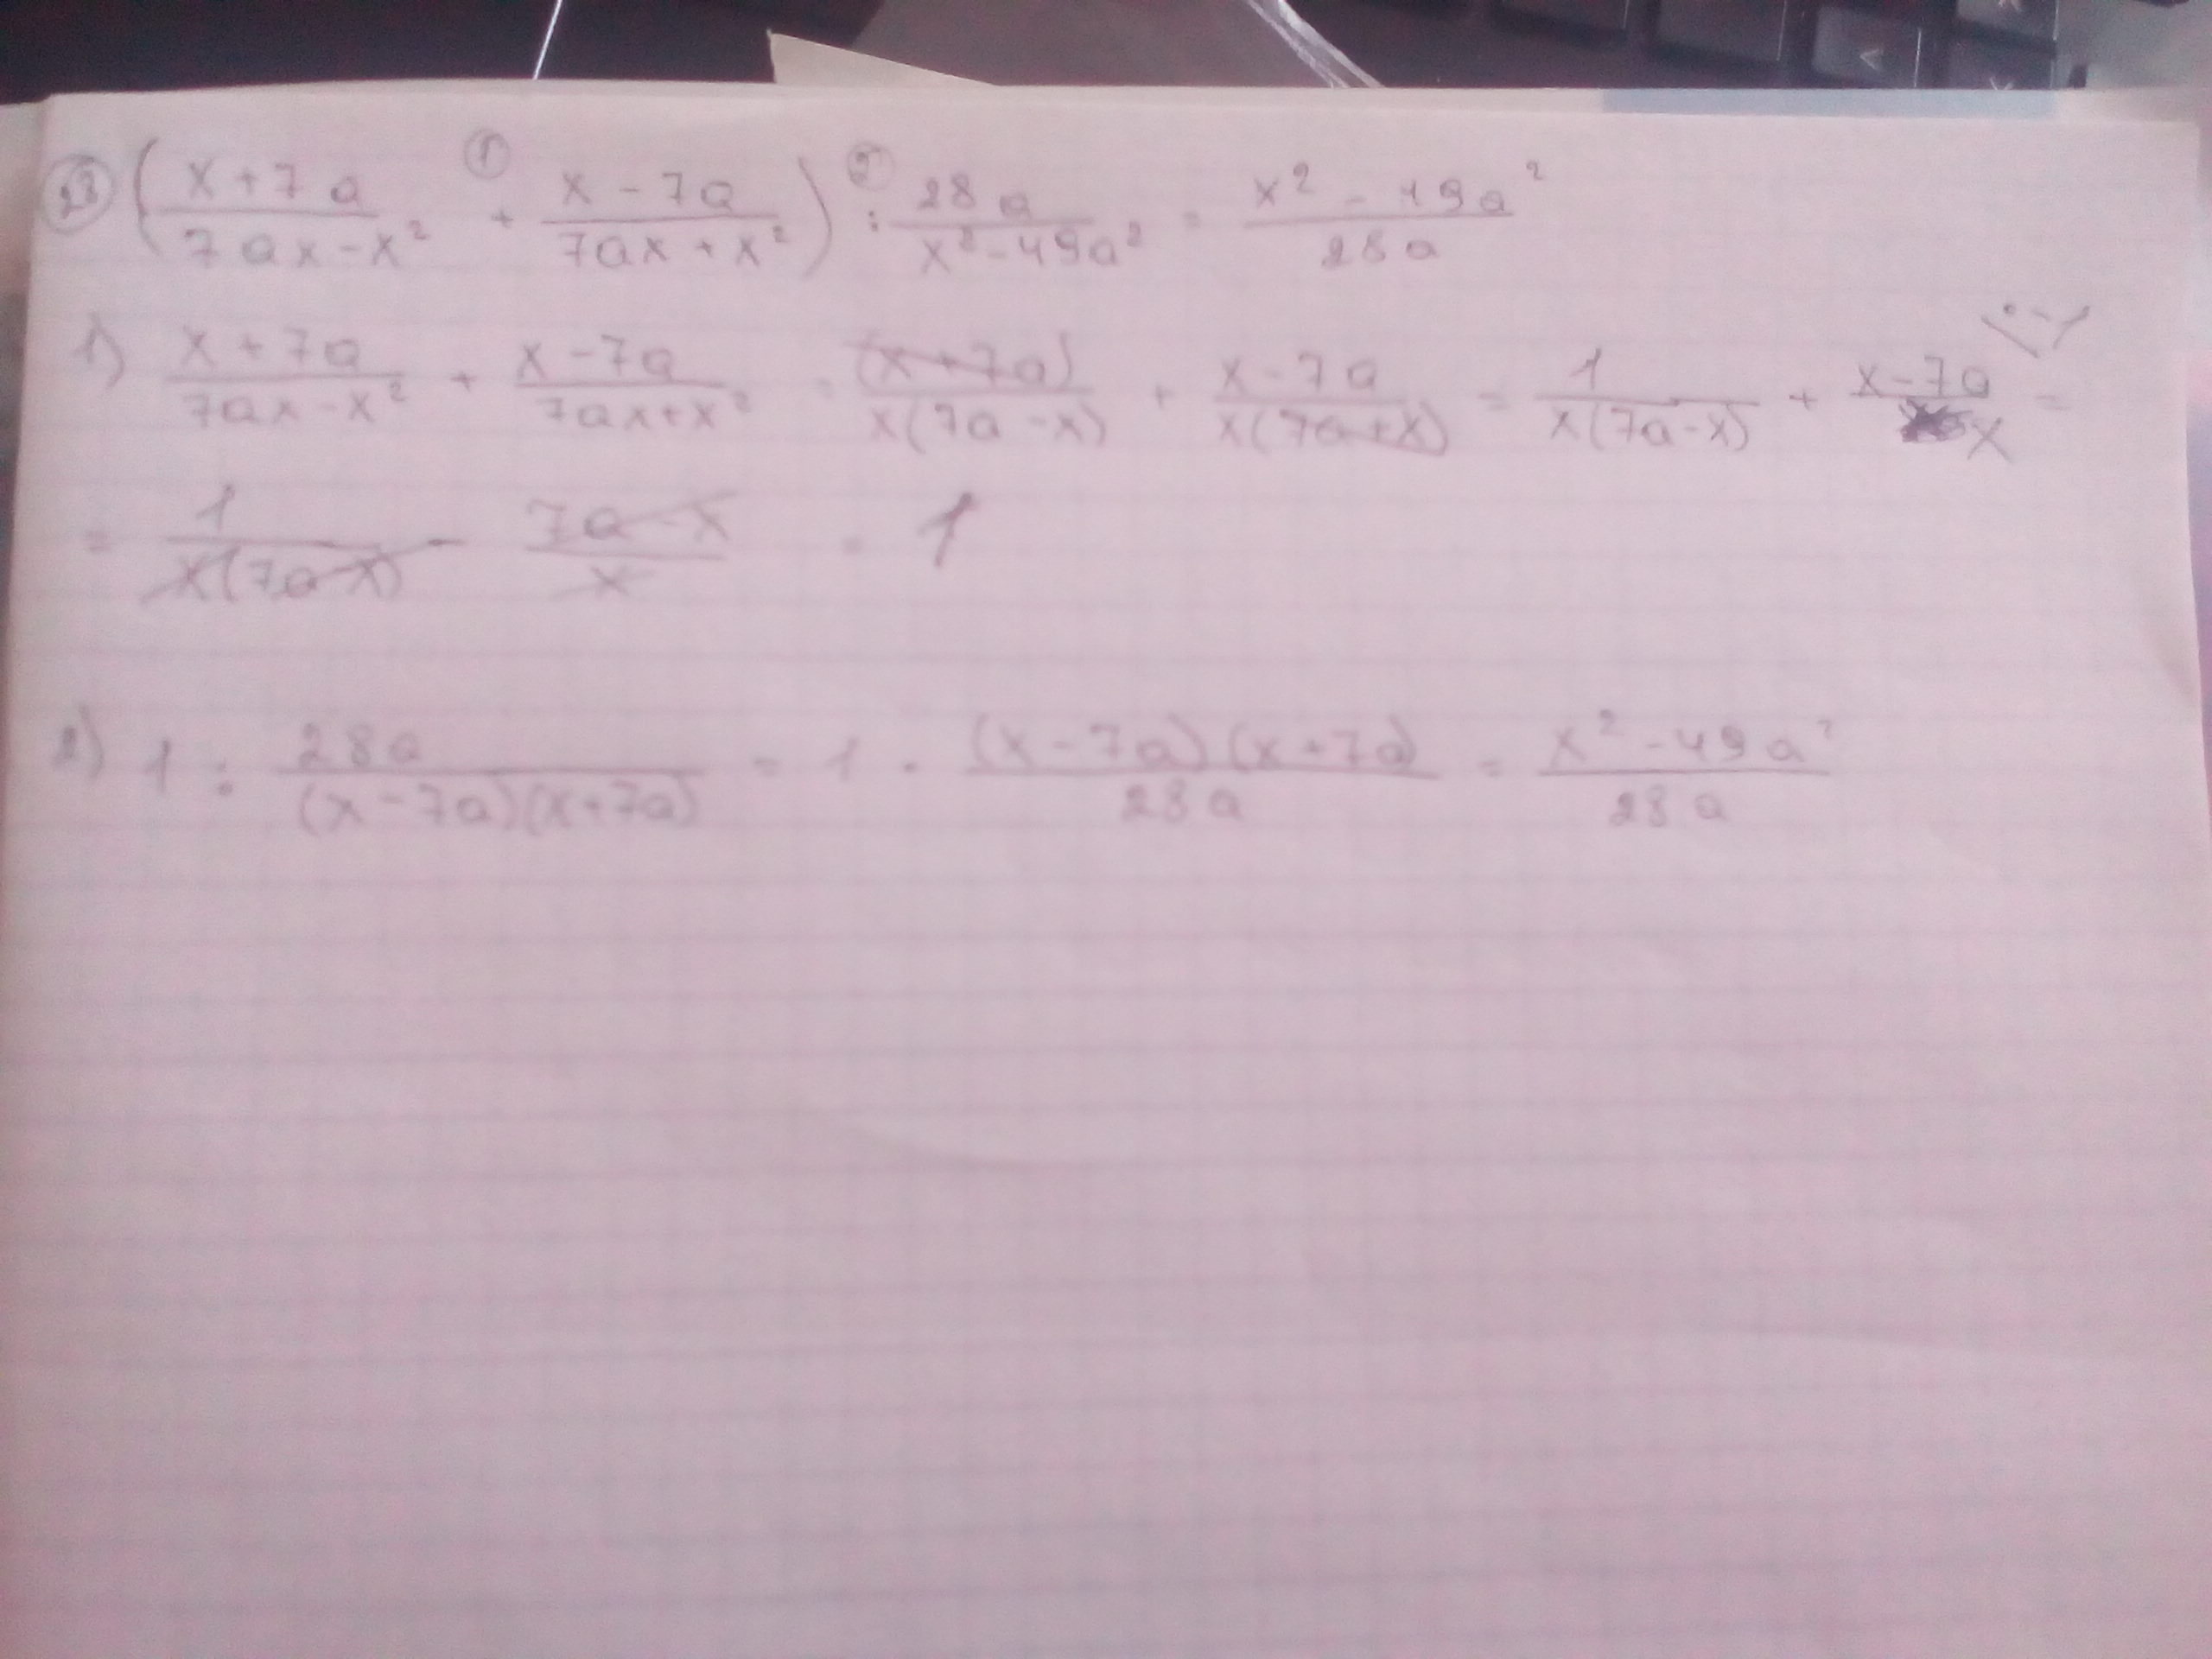 (23) ( (x + 7a)/(7ax - x²) +① (x - 7a)/(7ax + x²) ) :② 28a/(x² - 49a²) = (x² - 49a²)/(28a)
1) (x + 7a)/(7ax - x²) + (x - 7a)/(7ax + x²) = (x + 7a)/(x(7a - x)) + (x - 7a)/(x(7a + x)) = 1/(x(7a - x)) + (x - 7a)/x \ · -1 / =
= 1/(x(7a - x)) - (7a - x)/x = 1
2) 1 : 28a/((x - 7a)(x + 7a)) = 1 · ((x - 7a)(x + 7a))/(28a) = (x² - 49a²)/(28a)